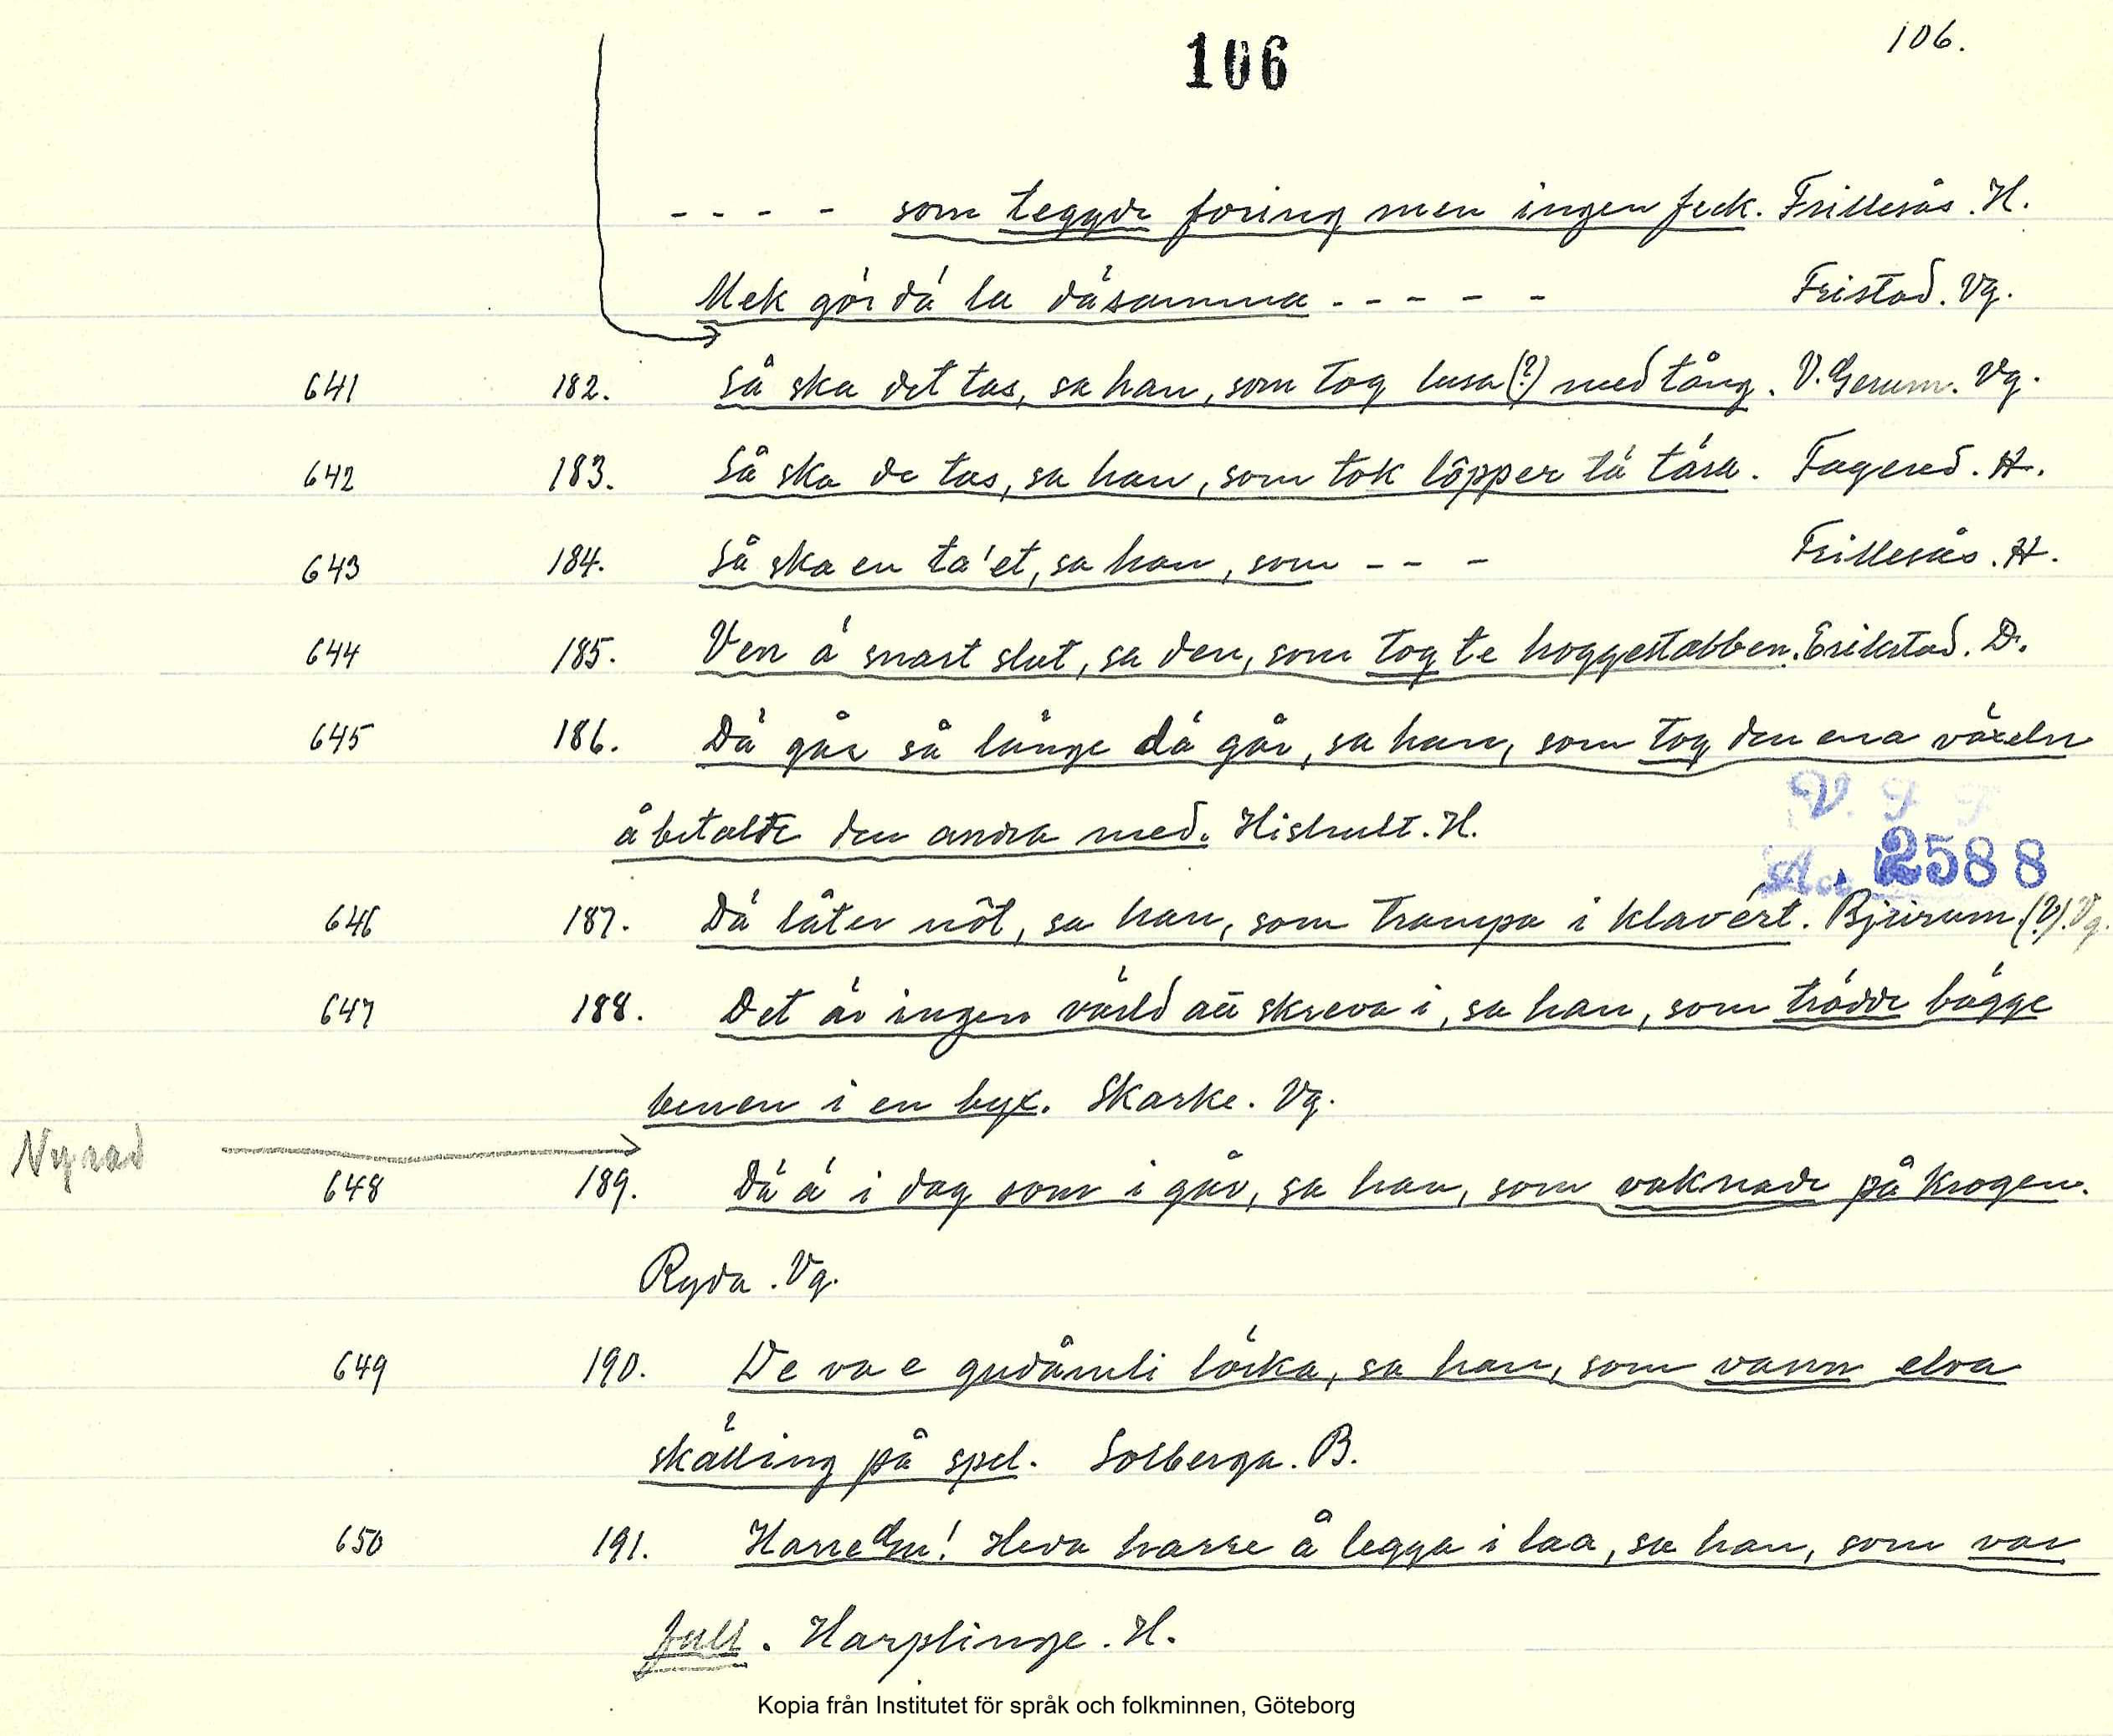 106
106.
- - - - som teggde foring men ingen feck. Frillesås. H.
Mek gör dä la däsamma - - - - - Fristad. Vg.
641 182. Så ska det tas, sa han, som tog lusa(?) med tång. V. Gerum. Vg.
642 183. Så ska de tas, sa han, som tok löpper tä tära. Fagered. H.
643 184. Så ska en ta'et, sa han, som - - - Frillesås. H.
644 185. Ven ä snart slut, sa den, som tog te hoggestabben. Erikstad. D.
645 186. Dä går så länge dä går, sa han, som tog den ena växeln
å betalte den andra med. Hishult. H.
V. F. F.
Acc. 2588
646 187. Dä låter nöt, sa han, som trampa i klavért. Bjurum (?). Vg.
647 188. Det är ingen värld att skreva i, sa han, som trädde bägge
benen i en byx. Skarke. Vg.
Ny rad
648 189. Dä ä i dag som i går, sa han, som vaknade på krogen.
Ryda. Vg.
649 190. De va e gudåmli löcka, sa han, som vann elva
skälling på spel. Solberga. B.
650 191. Heda harre å legga i laa, sa han, som var
full. Harplinge. H.
Kopia från Institutet för språk och folkminnen, Göteborg